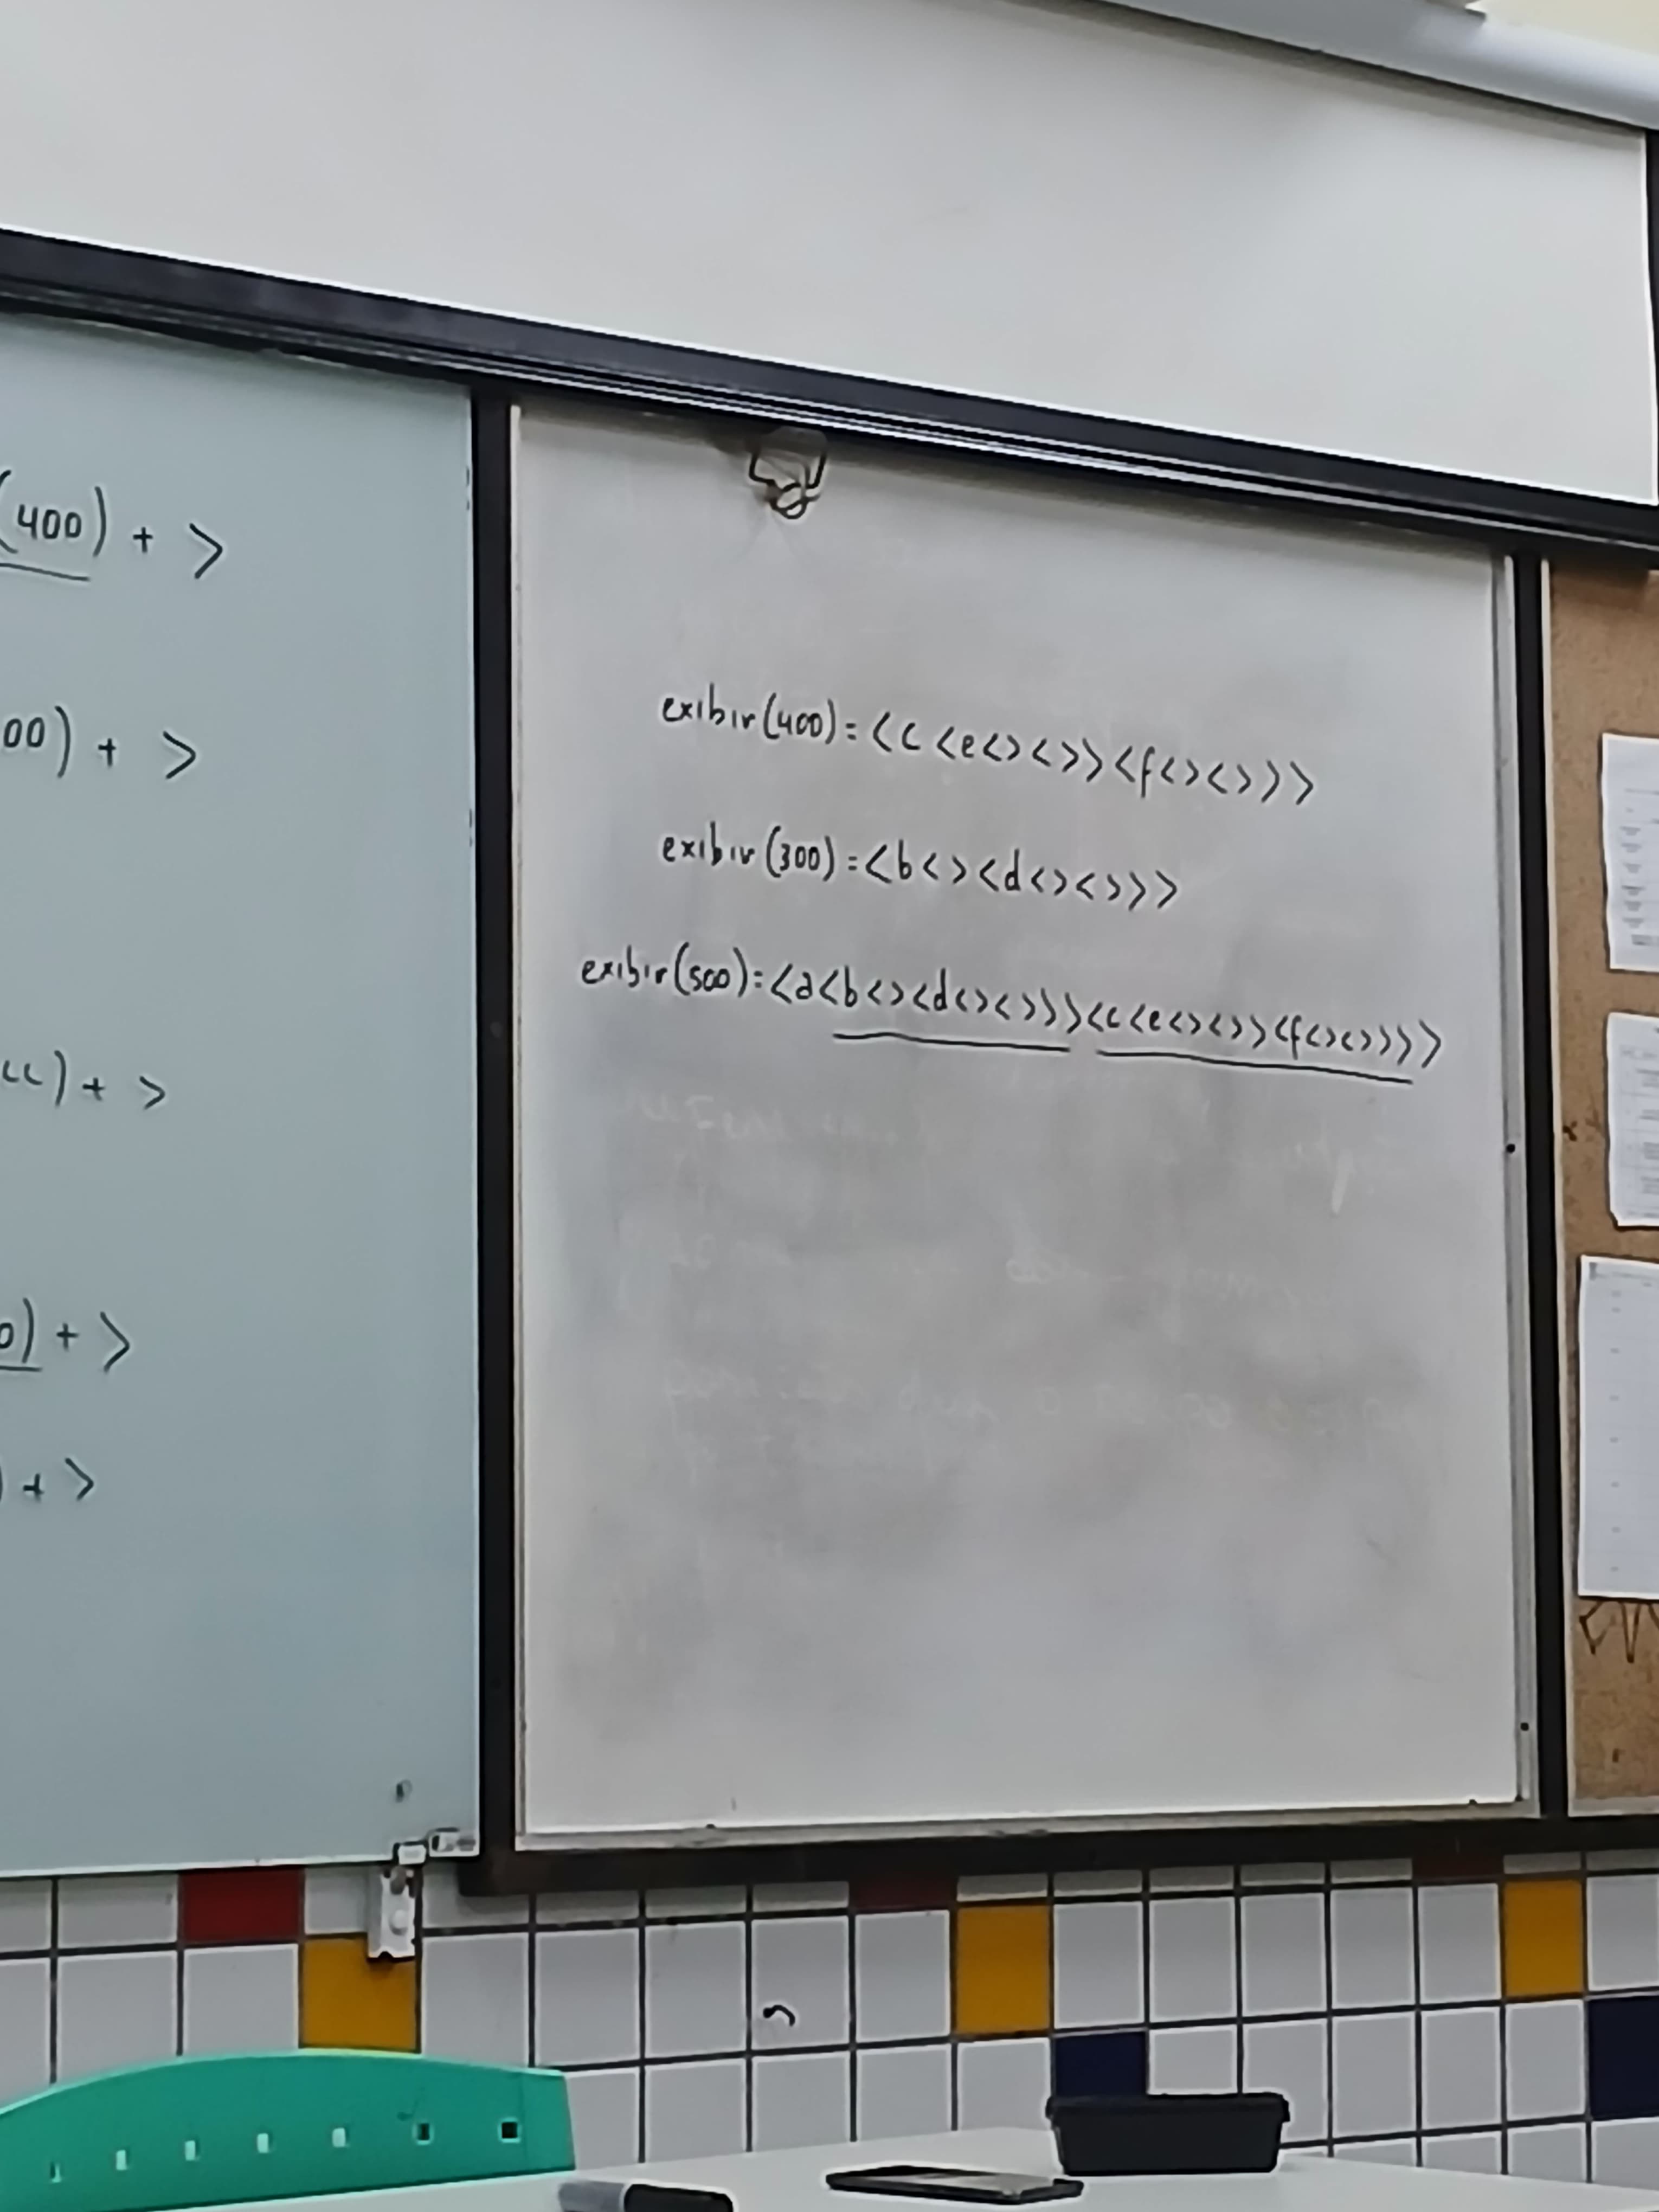 (400) + >
00) + >
cc) + >
0) + >
) + >
exibir(400) = <c<e<><>><f<><>>>
exibir(300) = <b<><d<><>>>
exibir(500) = <a<b<><d<><>>><c<e<><>><f<><>>>>